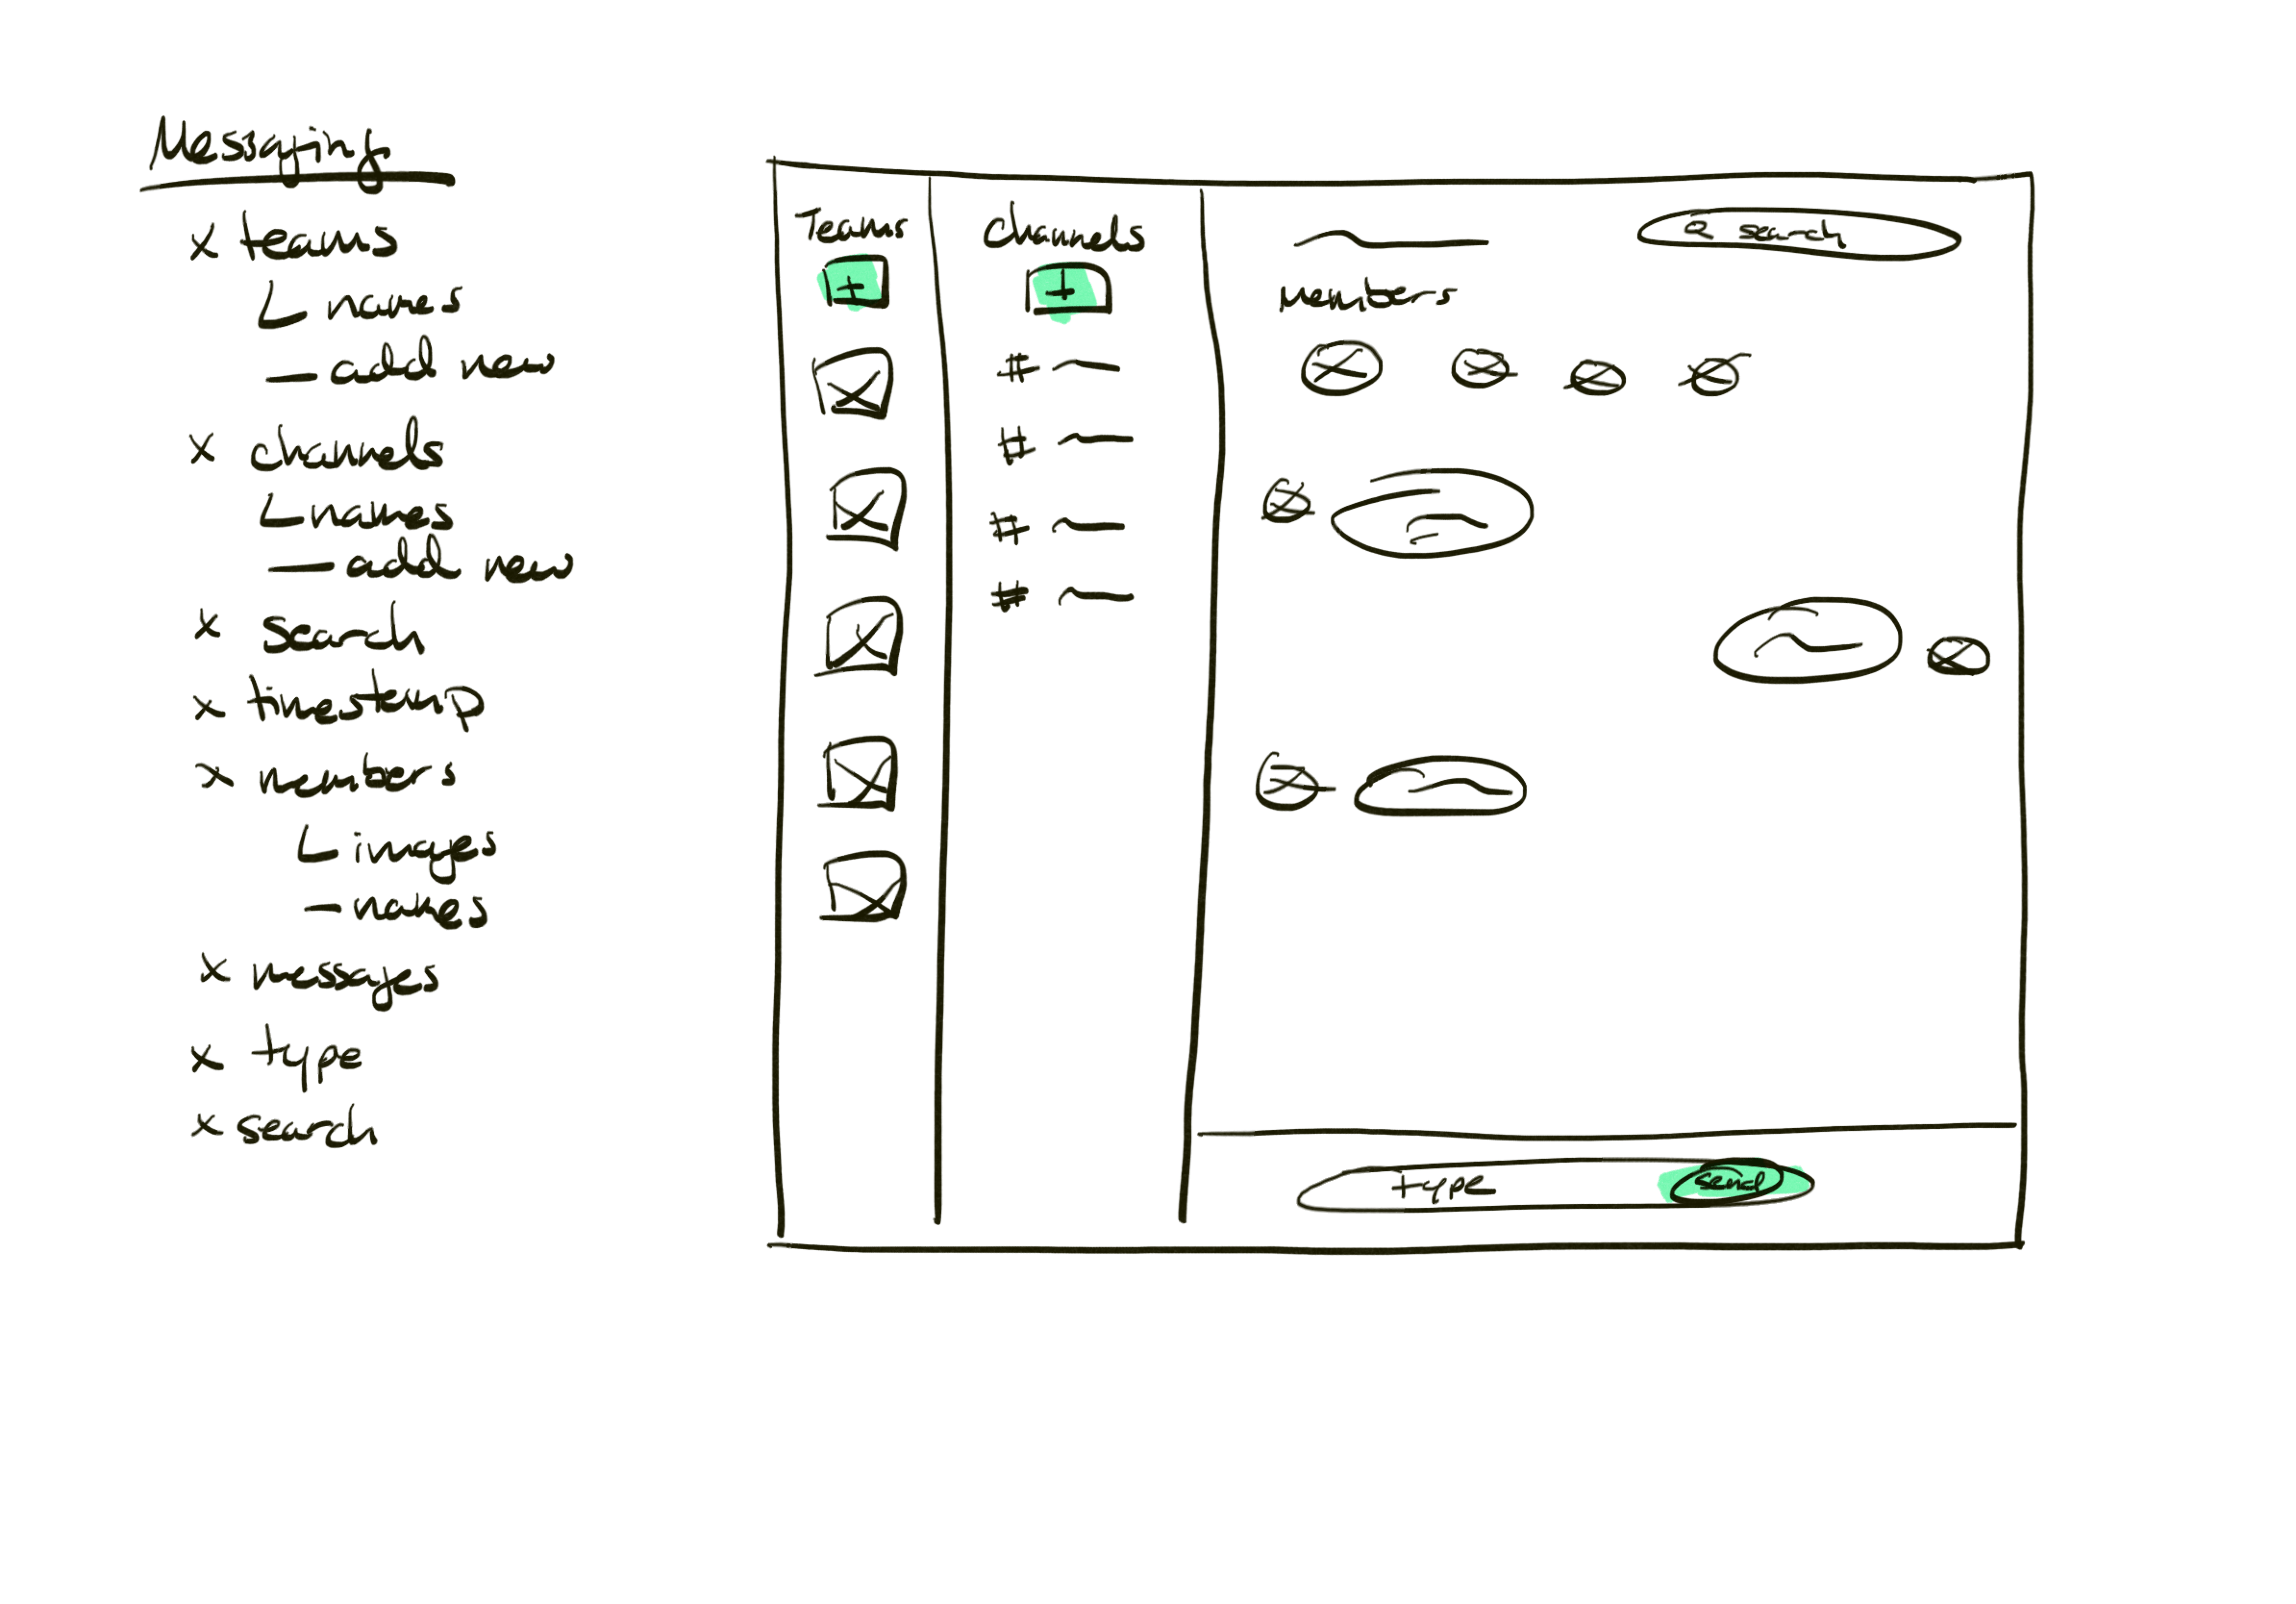 Messaging
x teams
names
- add new
x channels
names
- add new
x search
x timestamp
x members
images
- names
x messages
x type
x search
Teams
+
channels
+
#
#
#
#
search
Members
type
send